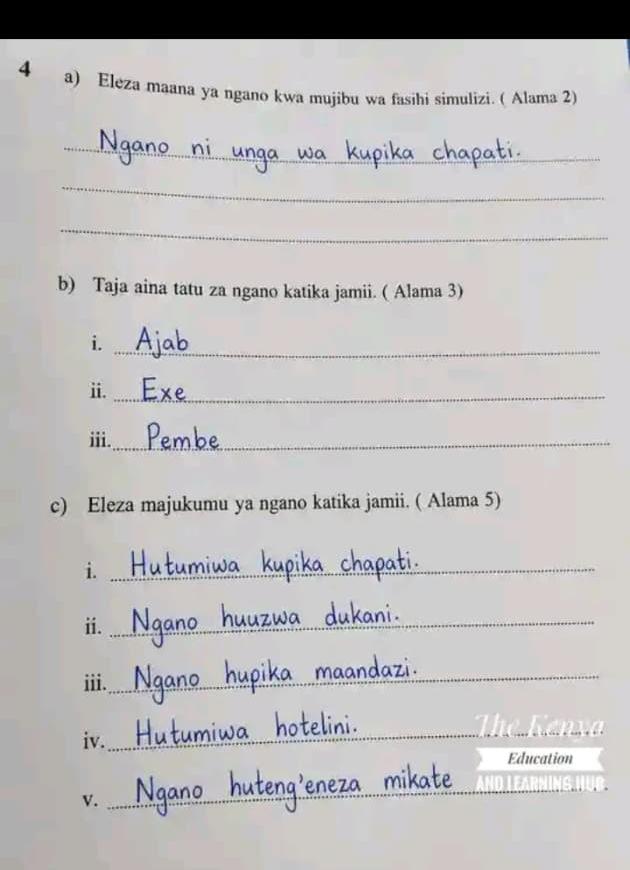 4 a) Eleza maana ya ngano kwa mujibu wa fasihi simulizi. ( Alama 2)
Ngano ni unga wa kupika chapati.
b) Taja aina tatu za ngano katika jamii. ( Alama 3)
i. Ajab
ii. Exe
iii. Pembe
c) Eleza majukumu ya ngano katika jamii. ( Alama 5)
i. Hutumiwa kupika chapati.
ii. Ngano huuzwa dukani.
iii. Ngano hupika maandazi.
iv. Hutumiwa hotelini.
v. Ngano huteng'eneza mikate
The Kenya
Education
AND LEARNING HUB